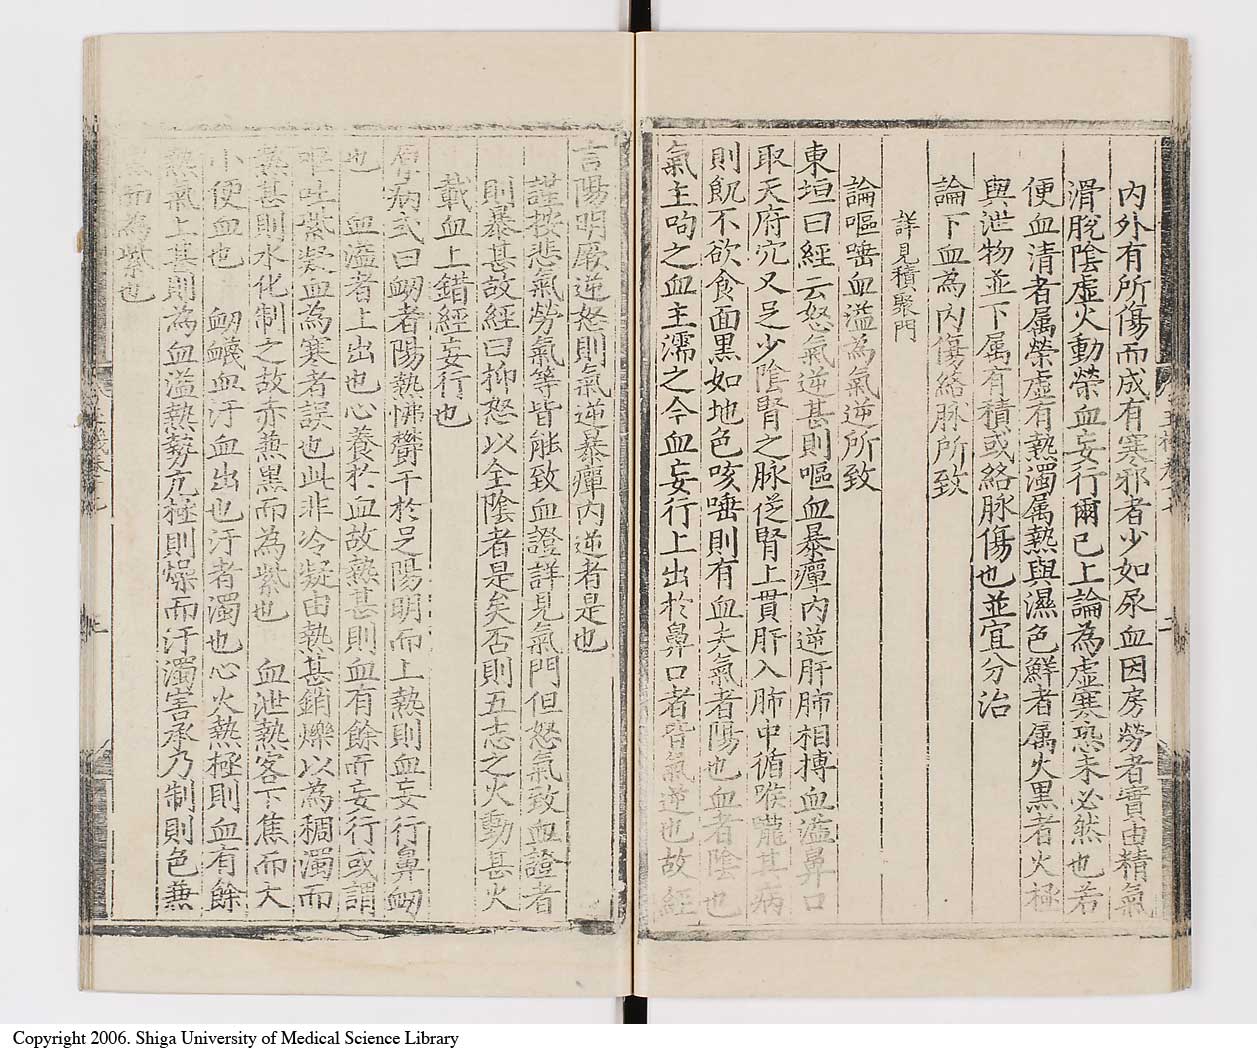 内外有所傷而成有寒邪者少如尿血因房勞者實由精氣
滑脫陰虛火動榮血妄行爾已上論為虛寒恐未必然也若
便血清者属榮虛有熱濁属熱與濕色鮮者属火黒者火極
與泄物並下属有積或絡脉傷也並宜分治
論下血為内傷絡脉所致
詳見積聚門
論嘔唾血溢為氣逆所致
東垣曰經云怒氣逆甚則嘔血暴癉内逆肝肺相搏血溢鼻口
取天府穴又足少隂腎之脉從腎上貫肝入肺中循喉嚨其病
則飢不欲食面黒如地色咳唾則有血夫氣者陽也血者陰也
氣主呴之血主濡之今血妄行上出於鼻口者皆氣逆也故經
言陽明厥逆怒則氣逆暴癉内逆者是也
謹按悲氣勞氣等皆能致血證詳見氣門但怒氣致血證者
則暴甚故經曰抑怒以全陰者是矣否則五志之火動甚火
載血上錯經妄行也
原病式曰衂者陽熱怫鬱干於足陽明而上熱則血妄行鼻衂
也　血溢者上出也心養於血故熱甚則血有餘而妄行或謂
嘔吐紫凝血為寒者誤也此非冷凝由熱甚銷爍以為稠濁而
熱甚則水化制之故赤兼黒而為紫也　血泄熱客下焦而大
小便血也　衂衊血汙血出也汙者濁也心火熱極則血有餘
熱氣上甚則為血溢熱勢亢極則燥而汙濁害承乃制則色兼
黒而為紫也
Copyright 2006. Shiga University of Medical Science Library